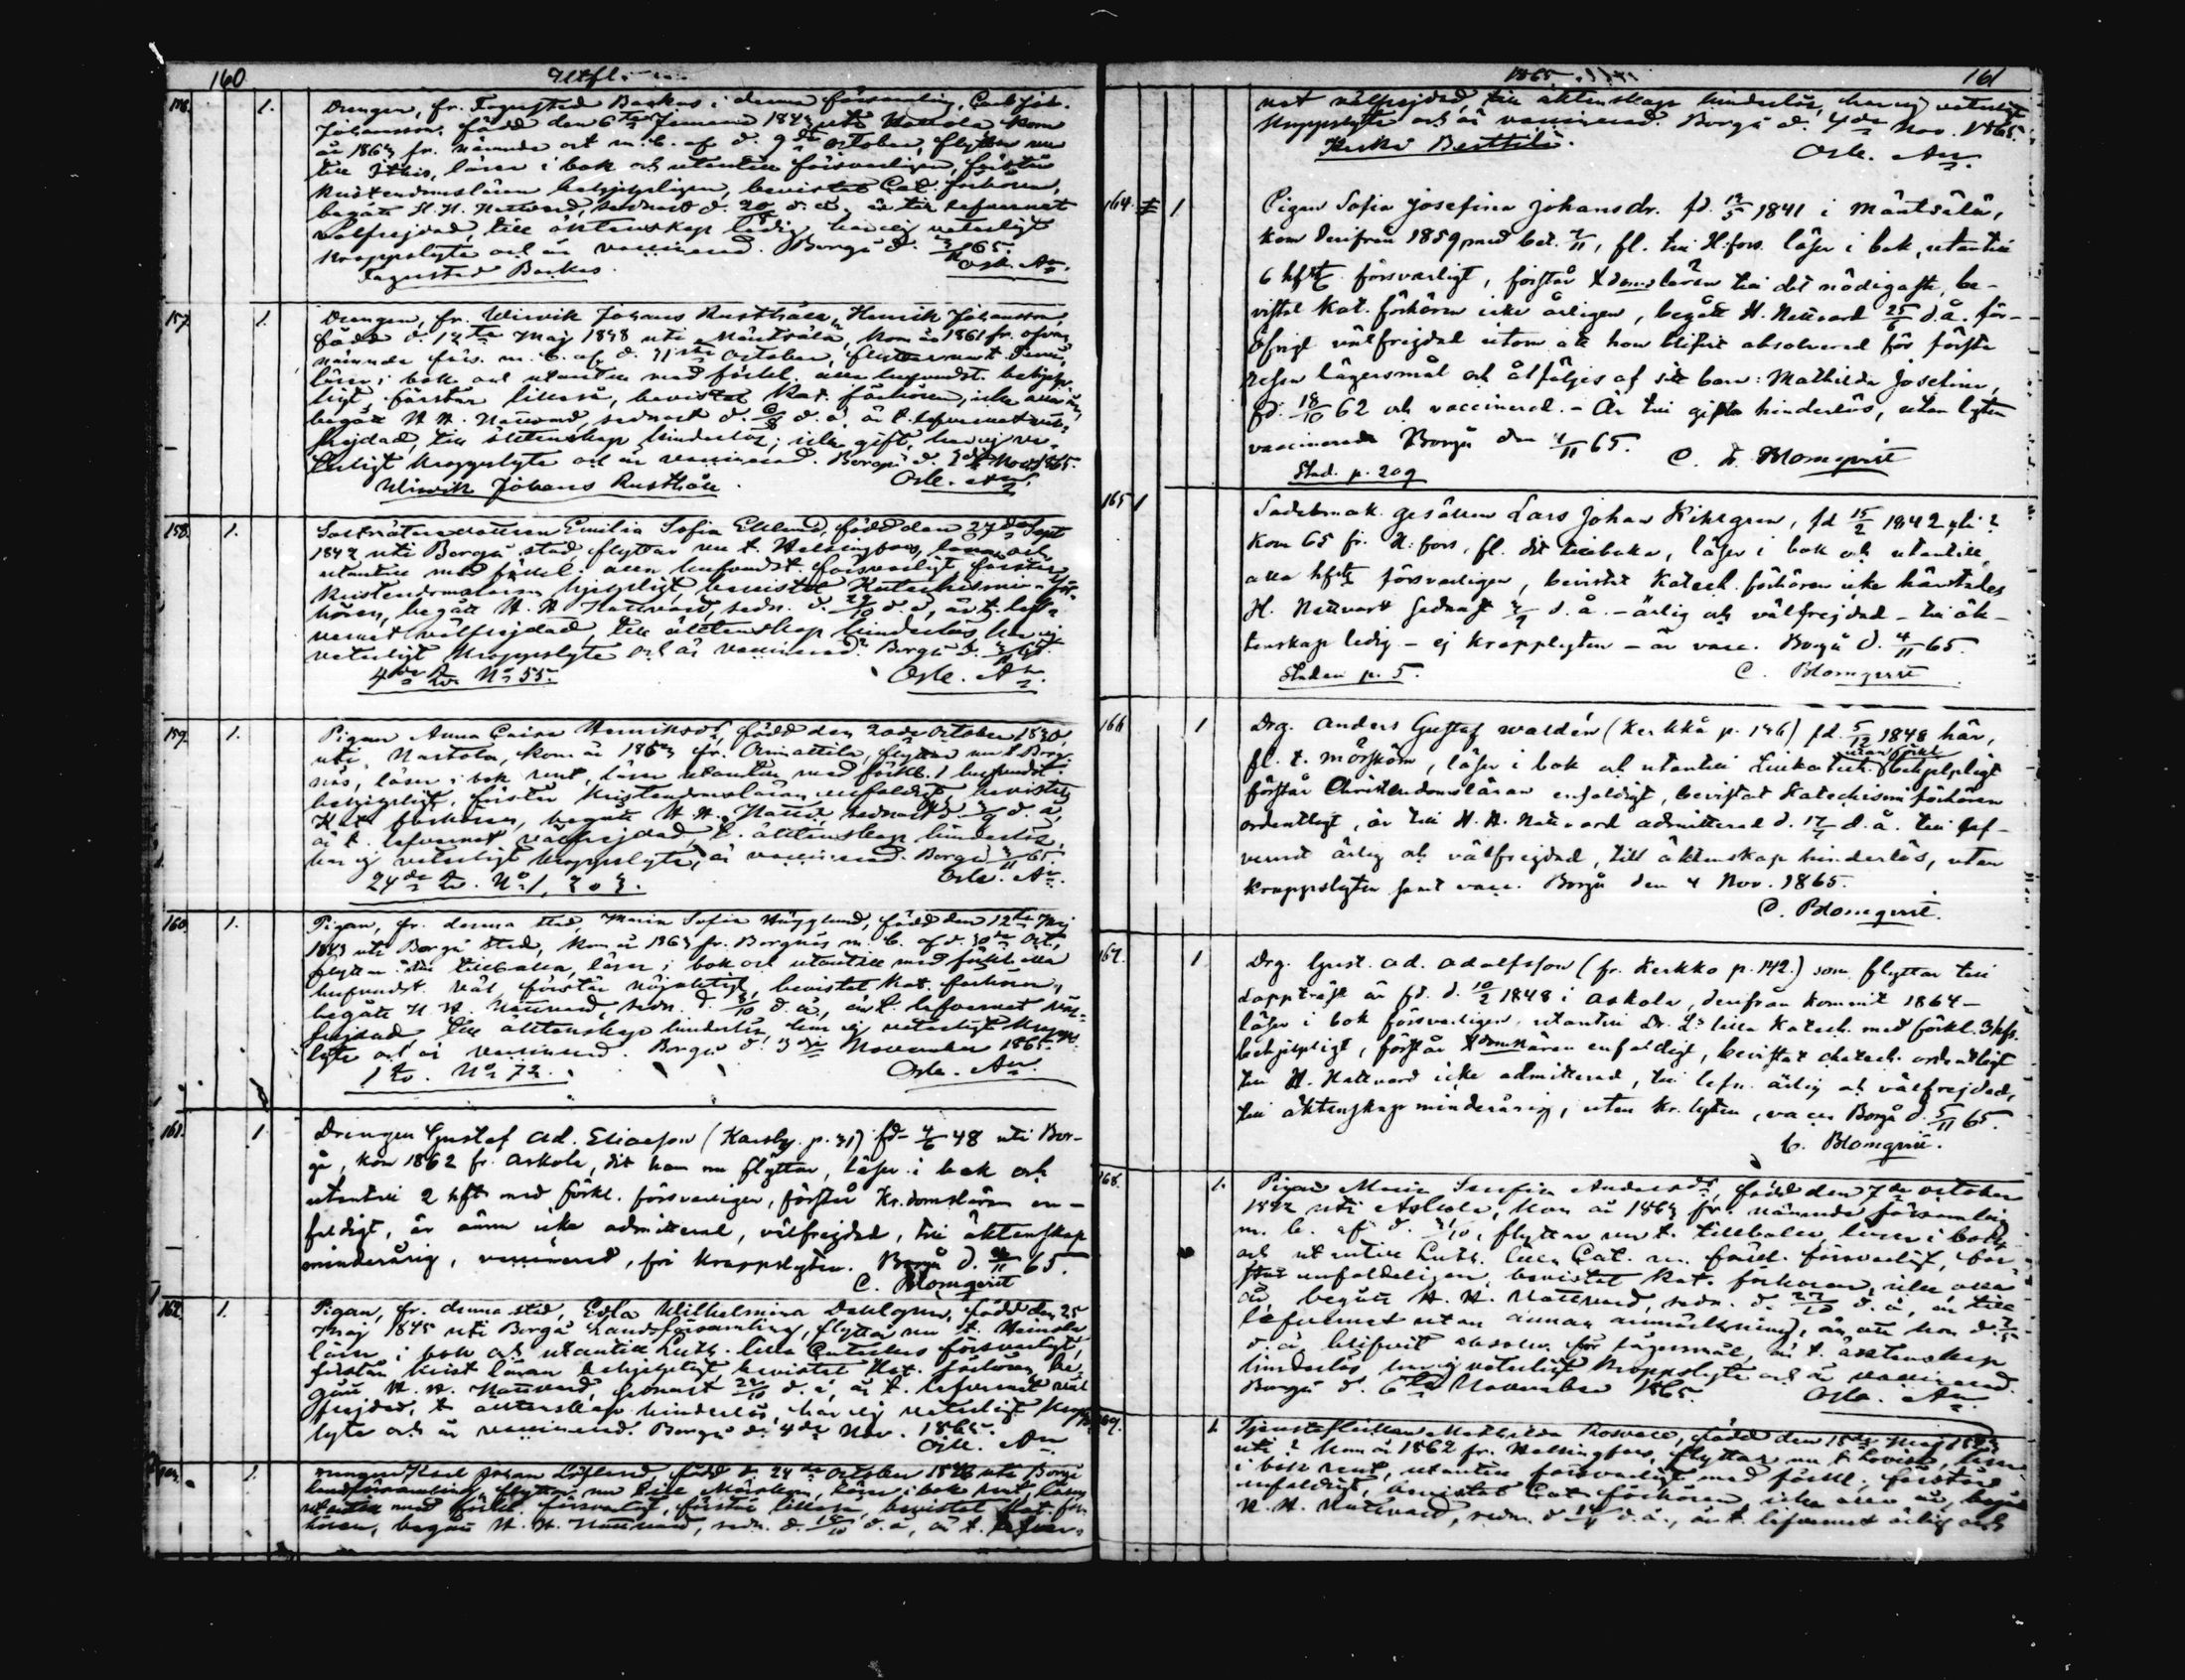 160
156. 1. Drengen, fr. Fagersted Backas i denna församling, Carl Joh.
Johansson, född den 6te Januari 1843 uti kom
år 1863 fr. nämnde ort m. b. af d. 9de October, flyttar nu
till Ithis, läser i bok och utantill försvarligen, förstår
kristendomsläran behjelpligen, bevistat Cat. förhören,
begått H. H. Nattvard, sednast d. d. å. är till lefvernet
välfrejdad, till äktenskap ledig, har ej veterligt
kroppslyte och är vaccinerad. Borgå d. 65.
Fagersted Backas. Osk. An
157. 1. Drengen, fr. Wirvik Johans Rusthåll, Henrik Johansson,
född d. 12te Maj 1848 uti Mäntsälä, kom år 1861 fr. ofvan
nämnde förs. m. b. af d. October, flyttar
läser i bok och utantill med förkl. alla hufvudst. behjelp-
ligt, förstår lillesa, bevistat Kat. förhören, icke alla år,
begått H. H. Nattvard, sednast d. d. å. är t. lefvernet väl-
frejdad, till äktenskap hinderlös, icke gift, har ej ve-
terligt kroppslyte och är vaccinerad. Borgå d. Nov. 1865.
Wirvik Johans Rusthåll. Osk. An
158. 1. Emilia Sofia Eklund, född den 27de Sept
1842 uti Borgå stad, flyttar nu t. Helsingfors, läser och
utantill med förkl. alla hufvudst. försvarligt, förstår
kristendomsläran hjelpligt, bevistat Katechismi-för-
hören, begått H. H. Nattvard, sedn. d. d. å. är t. lef-
vernet välfrejdad, till äktenskap hinderlös, har ej
veterligt kroppslyte och är vaccinerad. Borgå d. 65.
4de No 55. Osk. An
159. 1. Pigan Anna Caisa Henriksdr, född den 20de October 1830
uti Nastola, kom år fr. Orimattila, flyttar nu t. Borg-
näs, läser i bok rent, läser utantill med förkl. 1 hufvudst.
behjelpligt, förstår Kristendomsläran enfaldigt, bevistat
Kat. förhören, begått H. H. Nattv. sednast d. d. å.
är t. lefvernet välfrejdad, t. äktenskap hinderlös,
har ej veterligt kroppslyte, är vaccinerad. Borgå 65.
24de No 1, 203. Osk. An
160. 1. Pigan, fr. denna stad, Maria Sofia Häggland, född den 12te Maj
1843 uti Borgå Stad, kom år 1863 fr. Borgnäs m. b. af d. 30de Oct,
flyttar dit tillbaka, läser i bok och utantill med förkl. alla
hufvudst. väl, förstår någotligt, bevistat Kat. förhören,
begått H. H. Nattvard, sedn. d. d. å., är t. lefvernet väl-
frejdad till äktenskap hinderlös, har ej veterligt kropps-
lyte och är vaccinerad. Borgå d. 3dje November 1865.
1 No 72. Osk. An
161. 1. Drengen Gustaf Ad. Eliasson (Karsby p. 31) fd. 4/6 48 uti Bor-
gå, kom 1862 fr. Askola, dit han nu flyttar, läser i bok och
utantill 2 hft med förkl. försvarligen, förstår Kr.domsläran en-
faldigt, är ännu icke admitterad, välfrejdad, till äktenskap
minderårig, vaccinerad, fri kroppslyten. Borgå d. 65.
C. Blomqvist
162. 1. Pigan, fr. denna stad, Edla Wilhelmina Dahlgren, född den 25
Maj 1845 uti Borgå Landsförsamling, flyttar nu t. Heinola
läser i bok och utantill Luth. lilla Cateches försvarligt,
förstår krist läran behjelpligt, bevistat Kat. förhören, be-
gått H. H. Nattvard, sednast 22/10 d. å, är t. lefvernet väl
frejdad, t. äktenskap hinderlös, har ej veterligt kropps
lyte och är vaccinerad. Borgå d. 4de Nov. 1865.
Osk. An
1. Drengen Karl Johan Löflund, född d. 24de October uti Borgå
landsförsamling, flyttar nu till Mörskom, läser i bok rent, läser
utantill med förkl. försvarligt, förstår lillesa, bevistat Kat. för-
hören, begått H. H. Nattvard, sedn. d. d. å, är t. lefver-
1865 161
net välfrejdad, till äktenskap hinderlös, har ej veterligt
kroppslyte och är vaccinerad. Borgå d. 4de Nov. 1865.
Kerko Berttilä. Osk. An.
164. 1 Pigan Sofia Josefina Johansdr. fd. 1841 i Mäntsälä,
kom derifrån 1859 med bet. 7/11, fl. till H:fors. läser i bok, utantill
6 hfst försvarligt, förstår Xdomsläran till det nödigaste, be-
vistat Kat. förhören icke årligen, begått H. Nattvard 25/6 d. å. för-
öfrigt välfrejdad utom att hon blifvit absolverad för första
resan lägersmål och åtföljes af sitt barn: Mathilda Josefina,
fd. 18/10 62 och vaccinerad. - Är till gifta hinderlös, utan lyten
vaccinerad Borgå den 4/11 65. C. F. Blomqvist
Stad. p. 209
165 1 Sadelmak. gesällen Lars Johan Kihlgren, fd 15/2 1842
kom 65 fr. H:fors, fl. dit tillbaka, läser i bok och utantill
alla hfst försvarligen, bevistat Katech. förhören icke härstädes
H. Nattvard sednast d. å. - ärlig och välfrejdad - till äk-
tenskap ledig - ej kroppslyten - är vacc. Borgå d. 4/11 65.
Staden p. 5. C. Blomqvist
166 1 Drg. Anders Gustaf Waldén (Kerkkå p. 146) fd. 5/12 1848 här,
fl. t. Mörskom, läser i bok och utantill utan förkl. behjelpligt
förstår Christendomsläran enfaldigt, bevistat Katechismi förhören
ordentligt, är till H. H. Nattvard admitterad d. d. å. till lef-
vernet ärlig och välfrejdad, till äktenskap hinderlös, utan
kroppslyten samt vacc. Borgå den 4 Nov. 1865.
C. Blomqvist.
167. 1 Drg. Gust. Ad. Adolfsson (fr. Kerkko p. 142.) som flyttar till
Lappträsk är fd. d. 10/2 1848 i Askola, derifrån kommit 1864 -
läser i bok försvarligen, utantill Dr. Ls lilla Katech. med förkl. 3 hfs.
behjelpligt, förstår Xdomsläran enfaldigt, bevistat chatech. ordentligt
till H. Nattvard icke admitterad, till lefn. ärlig och välfrejdad,
till äktenskap minderårig, utan kr. lyten, vacc Borgå d. 5/11 65.
C. Blomqvist.
168. 1. Pigan Maria Serafia Andersdr, född den 7de October
1842 uti Askola, kom år 1863 fr. nämnde församling
m. b. af d. 31/10, flyttar nu t. tillbaka, läser i bok
och utantill Luth. lilla Cat. m. förkl. försvarligt, för-
står enfaldeligen, bevistat Kat. förhören, icke alla
år, begått H. H. Nattvard, sedn. d. d. å, är till
lefvernet utan annan anmärkning, än att hon d.
d. å. blifvit absolv. för lägersmål, är t. äktenskap
hinderlös har ej veterligt kroppslyte och är vaccinerad.
Borgå d. 6te November 1865. Osk. An
169. 1. Tjensteflickan Mathilda Rosvall, född den 18de Maj
uti? kom år 1862 fr. Helsingfors, flyttar nu t. Lovisa, läser
i bok rent, utantill försvarligt med förkl., förstår
enfaldigt, bevistat Cat. förhören, icke alla år, begått
H. H. Nattvard, sedn. d. d. å., är t. lefvernet ärlig och